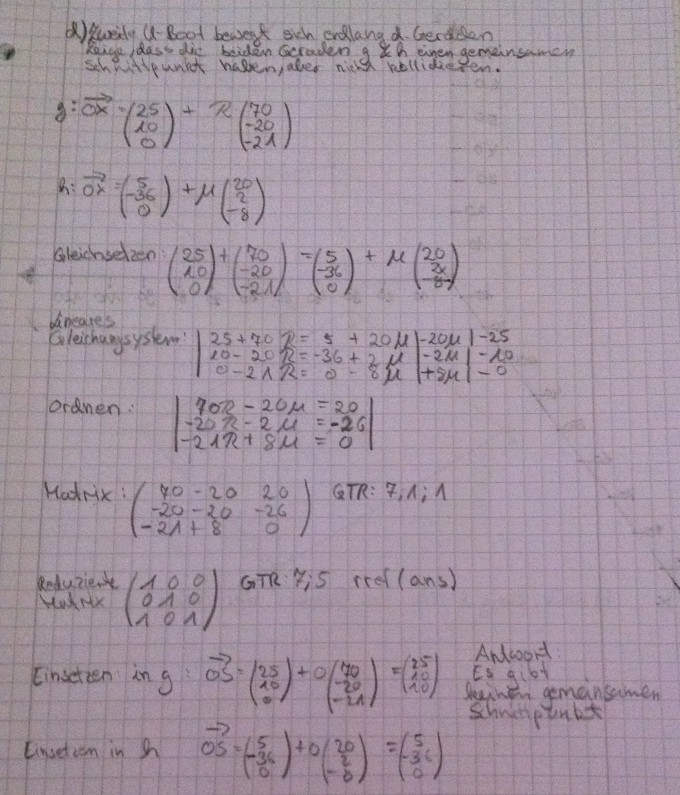 d) Zweite U-Boot bewegt sich entlang d. Geraden
Zeige, dass die beiden Geraden g & h einen gemeinsamen
Schnittpunkt haben, aber nicht kollidieren.
g: OX = (25 10 0) + R (70 -20 -21)
h: OX = (5 -36 0) + μ (20 2 -8)
Gleichsetzen: (25 10 0) + (70 -20 -21) = (5 -36 0) + μ (20 2x -8)
Lineares
Gleichungsystem: | 25 + 70 R = 5 + 20μ | -20μ | -25
10 - 20 R = -36 + 2 μ | -2μ | -10
0 - 21 R = 0 - 8 μ | +8μ | - 0
Ordnen: | 70R - 20μ = 20
-20 R - 2 μ = -26
-21R + 8μ = 0 |
Matrix: ( 70 - 20 20 GTR: 7, 1; 1
-20 - 20 -26
- 21 + 8 0 )
Reduzierte ( 1 0 0 GTR: 7; 5 rref (ans)
Matrix 0 1 0
1 0 1 )
Einsetzen in g: OS = (25 10 0) + 0 (70 -20 -21) = (25 10 10)
Antwort:
Es gibt
keinen gemeinsamen
Schnittpunkt
Einsetzen in h OS = (5 -36 0) + 0 (20 2 -8) = (5 -36 0)